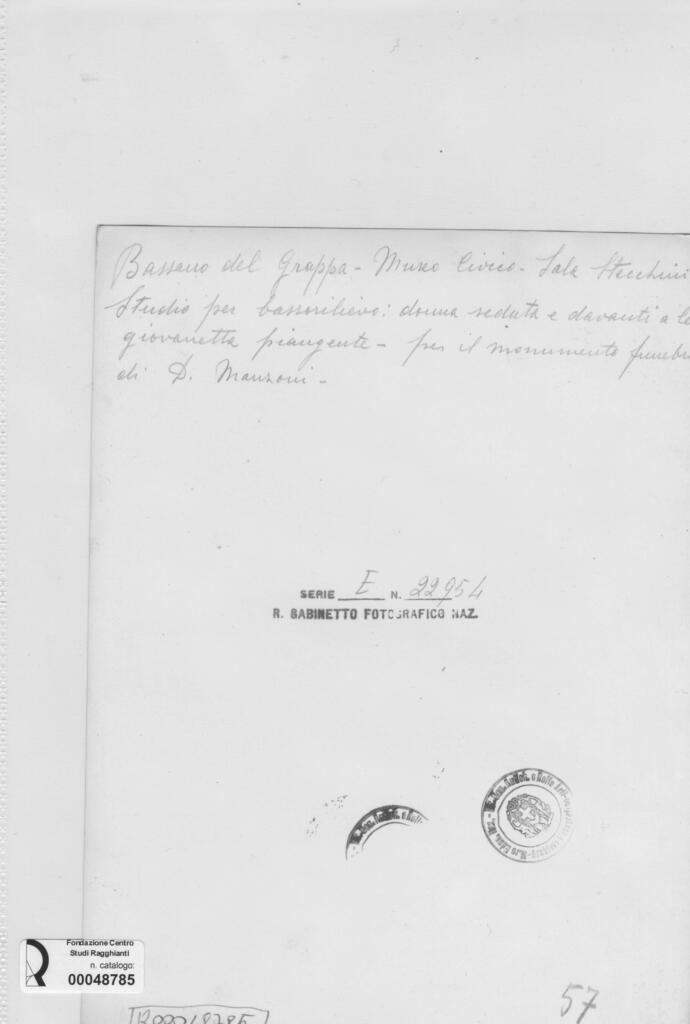 Bassano del Grappa - Museo Civico - Sala Stecchini
Studio per bassorilievo: donna seduta e davanti a le
giovanetta piangente - per il monumento funebr
di D. Manzoni -
SERIE E N. 22954
R. GABINETTO FOTOGRAFICO NAZ.
Antich. e Belle Arti
Antich. e Belle
Fondazione Centro
Studi Ragghianti
n. catalogo:
00048785
R00048785
57